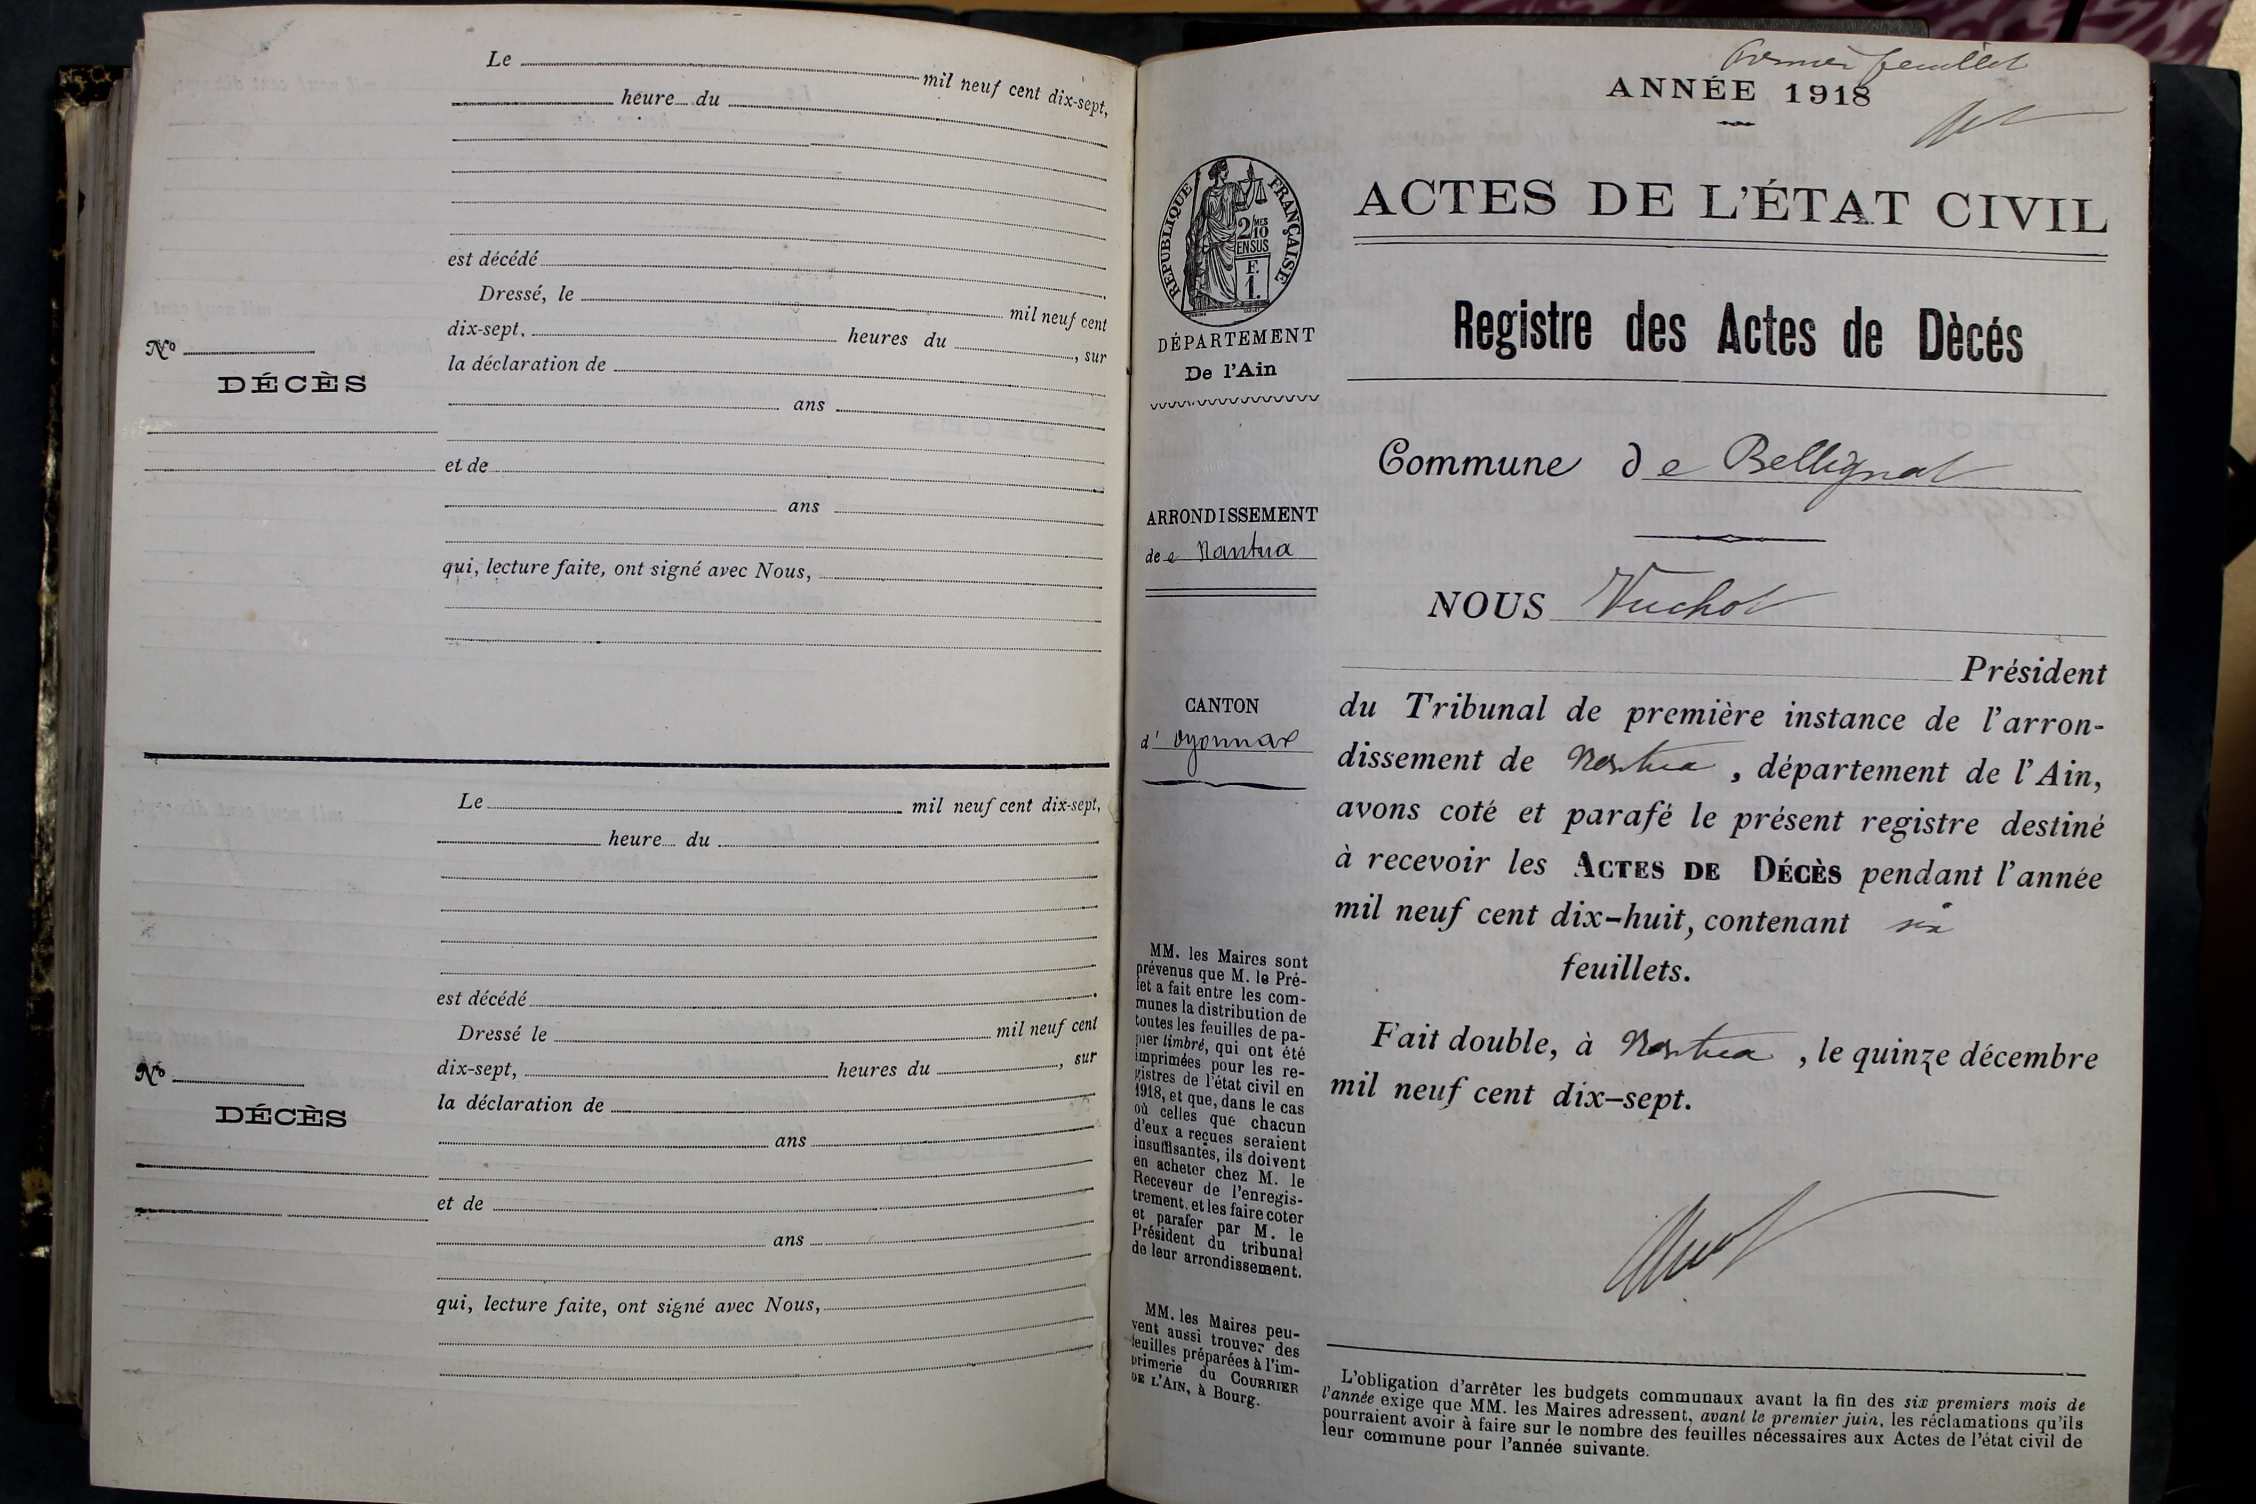 Le mil neuf cent dix-sept,
heure du
est décédé
Dressé, le mil neuf cent
dix-sept, heures du , sur
No
la déclaration de
DÉCÈS
ans
et de
ans
qui, lecture faite, ont signé avec Nous,
Le mil neuf cent dix-sept,
heure du
est décédé
Dressé le mil neuf cent
dix-sept, heures du , sur
No
la déclaration de
DÉCÈS
ans
et de
ans
qui, lecture faite, ont signé avec Nous,
Premier feuillet
ANNÉE 1918
RÉPUBLIQUE FRANÇAISE
2/10 MES
EN SUS
F.
1.
DÉPARTEMENT
De l'Ain
ARRONDISSEMENT
de e Nantua
CANTON
d' Oyonnax
MM. les Maires sont
prévenus que M. le Pré-
fet a fait entre les com-
munes la distribution de
toutes les feuilles de pa-
pier timbré, qui ont été
imprimées pour les re-
gistres de l'état civil en
1918, et que, dans le cas
où celles que chacun
d'eux a reçues seraient
insuffisantes, ils doivent
en acheter chez M. le
Receveur de l'enregis-
trement, et les faire coter
et parafer par M. le
Président du tribunal
de leur arrondissement.
MM. les Maires peu-
vent aussi trouver des
feuilles préparées à l'im-
primerie du COURRIER
DE L'AIN, à Bourg.
ACTES DE L'ÉTAT CIVIL
Registre des Actes de Dècés
Commune de Bellignat
NOUS Vuchot
Président
du Tribunal de première instance de l'arron-
dissement de Nantua, département de l'Ain,
avons coté et parafé le présent registre destiné
à recevoir les ACTES DE DÉCÈS pendant l'année
mil neuf cent dix-huit, contenant six
feuillets.
Fait double, à Nantua, le quinze décembre
mil neuf cent dix-sept.
L'obligation d'arrêter les budgets communaux avant la fin des six premiers mois de
l'année exige que MM. les Maires adressent, avant le premier juin, les réclamations qu'ils
pourraient avoir à faire sur le nombre des feuilles nécessaires aux Actes de l'état civil de
leur commune pour l'année suivante.